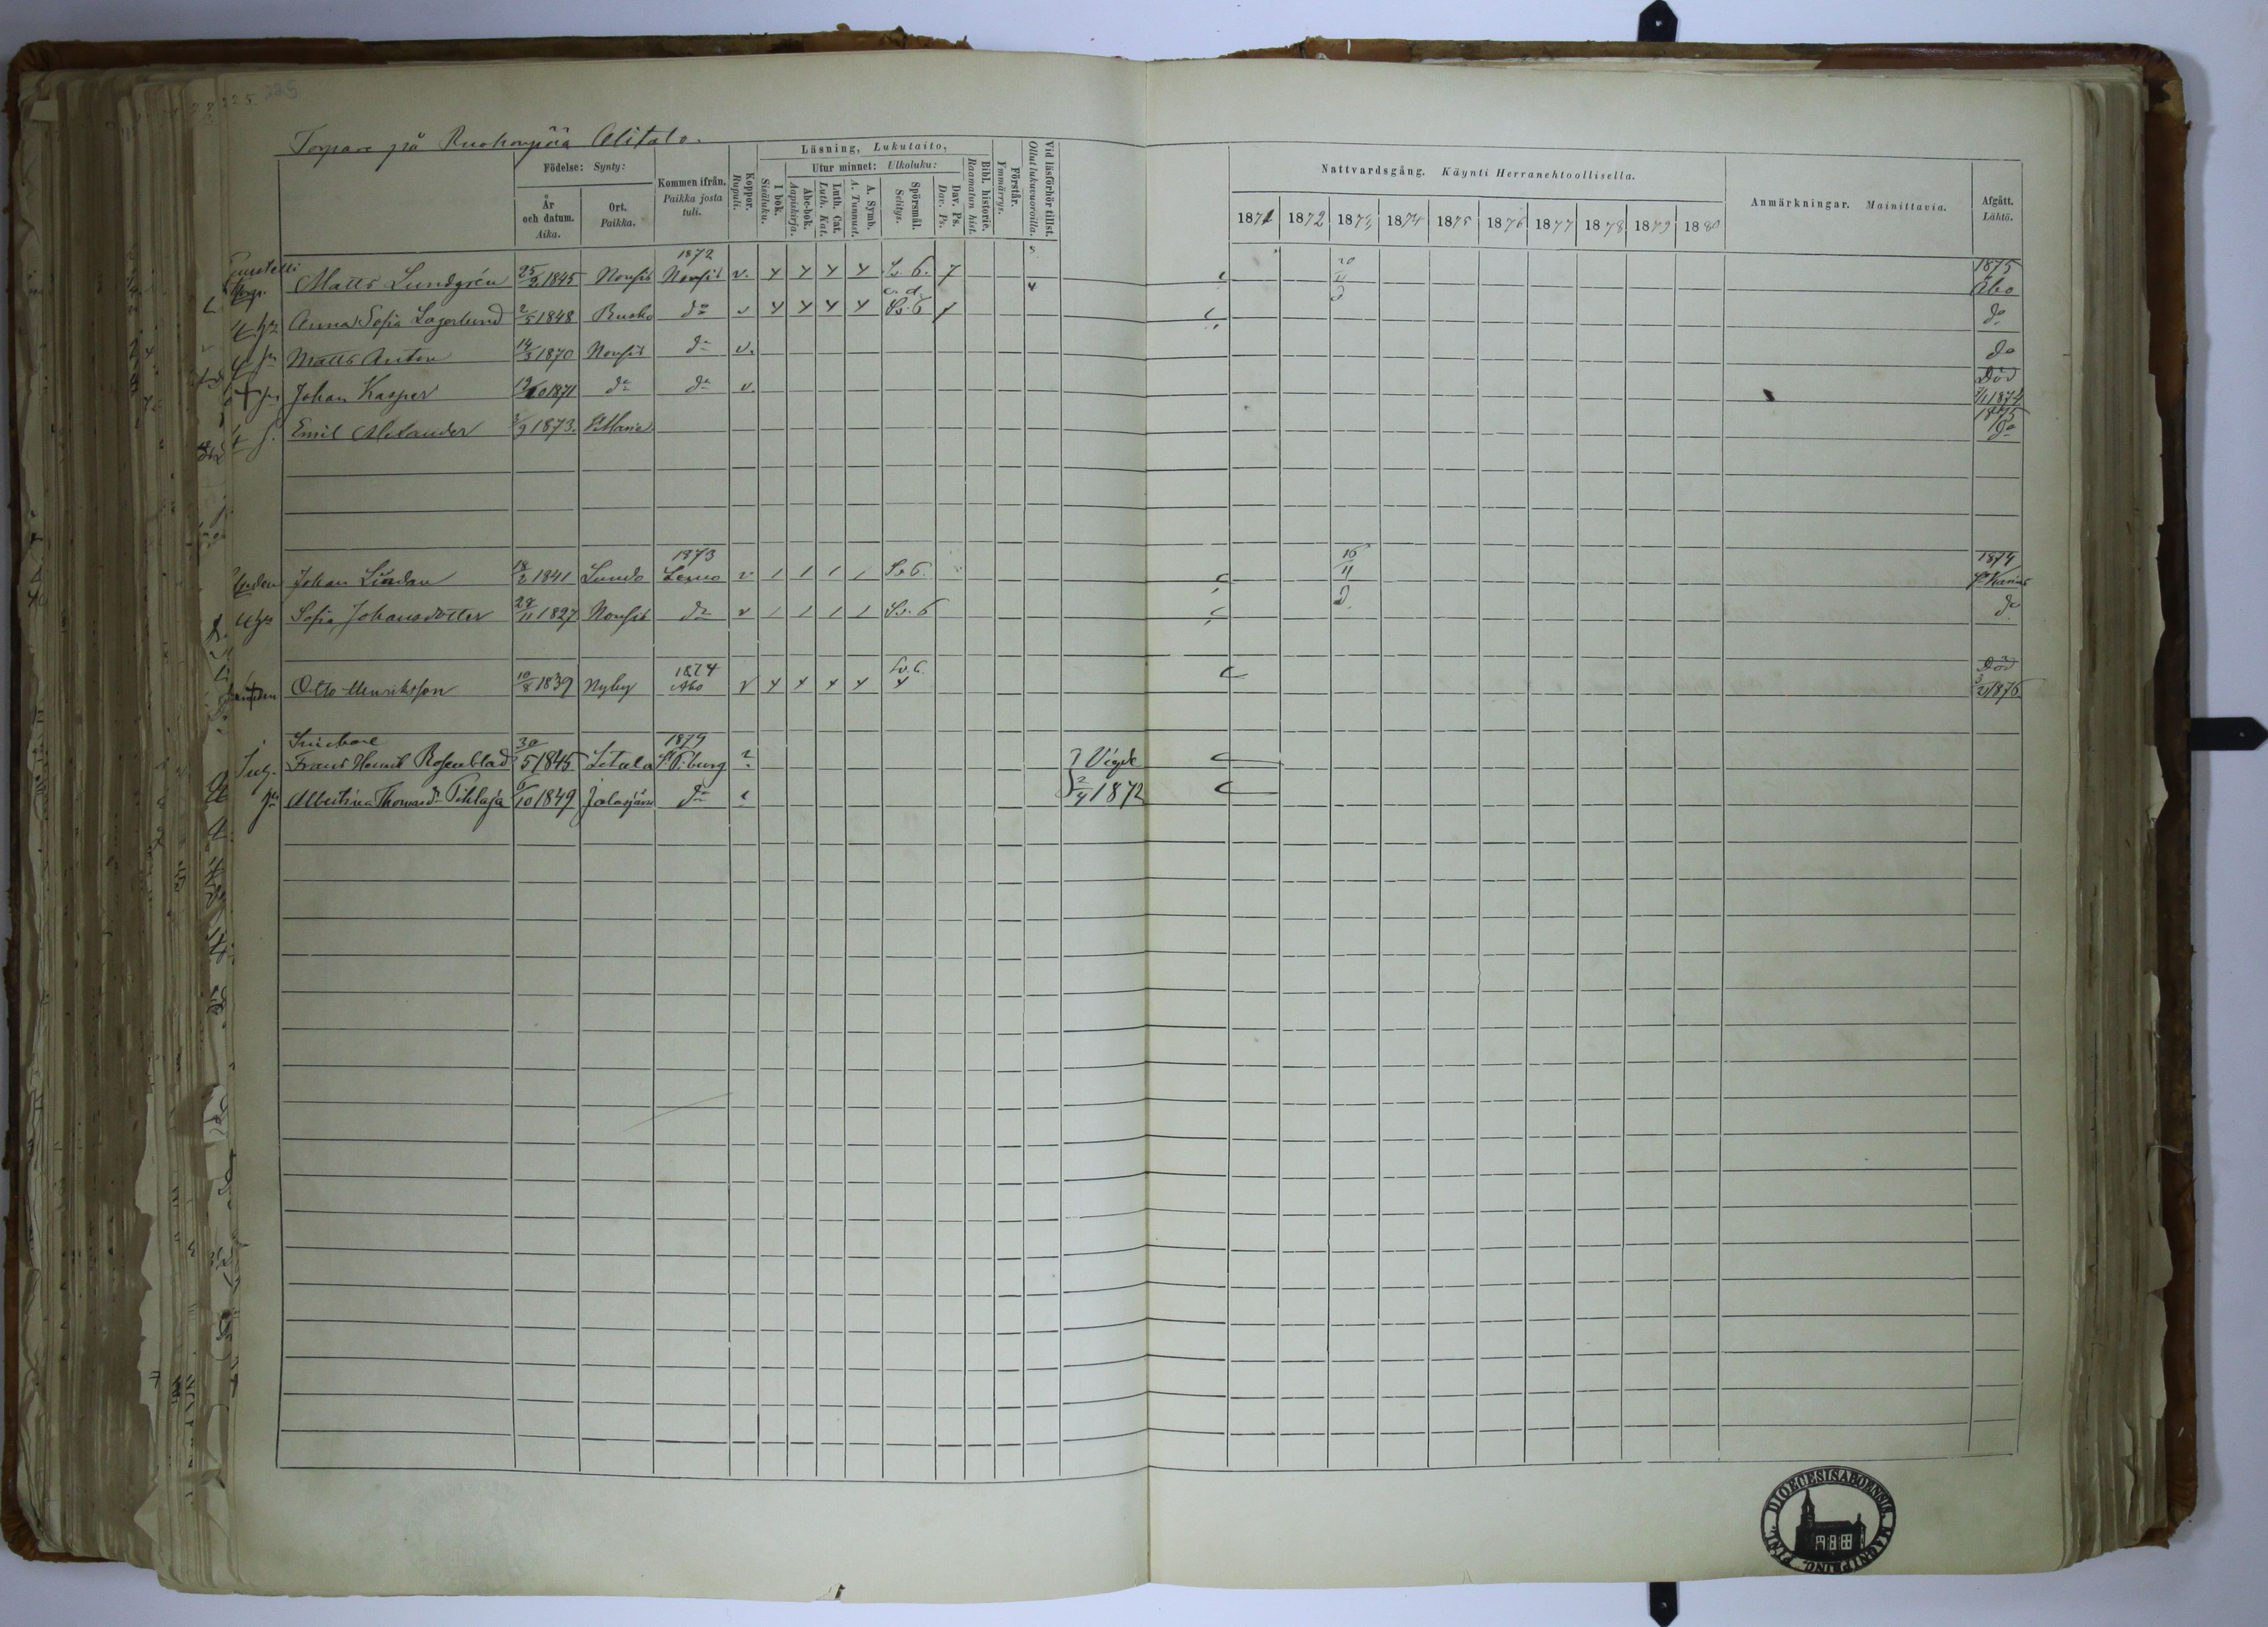 225. 225
Torpare på Ruohonpää Alitalo.
Födelse: Synty:
År och datum. Aika.
Ort. Paikka.
Kommen ifrån. Paikka josta tuli.
Koppor. Rupuli.
Läsning, Lukutaito,
I bok. Sisäluku.
Utur minnet: Ulkoluku:
Abc-bok. Aapiskirja.
Luth. Cat. Luth. Kat.
A. Symb. A. Tunnust.
Spörsmål. Selitys.
Dav. Ps. Dav. Ps.
Bibl. historie. Raamatun hist.
Förstår. Ymmärrys.
Vid läsförhör tillst. Ollut lukuvuoroilla.
Nattvardsgång. Käynti Herranehtoollisella.
1871 1872 1873 1874 1875 1876 1877 1878 1879 1880
Anmärkningar. Mainittavia.
Afgått. Lähtö.
Matts Lundgrén 25/2 1845 Nousis 1872 Nousis v. Sv. 6. 20/11 1875 Åbo
Anna Sofia Lagerlund 2/5 1848 Rusko do v Sv. 6 do
Matts Anton 14/3 1870 Nousis do v. do
Johan Kasper 19/10 1871 do do v. Död 7/1 1874
Emil Alexander 2/9 1873. St Marie 1875 do
Inden Johan Lindan 18/2 1841 Lundo 1873 Lemo v Sv 6. 16/11 1874 St Karins
Sofia Johansdotter 28/11 1827. Nousis do v Sv. 6 do
Otto Henriksson 10/8 1839 Nyby 1874 Åbo v Sv 6. Död 3/2 1876
Snickare
Frans Henrik Rosenblad 30/5 1845 Letala 1879 St P.burg ? Vigde
Albertina Thomasdr Pihlaja 6/10 1849 Jalasjärvi do 2/4 1872
DIOECESIS ABOENSIS